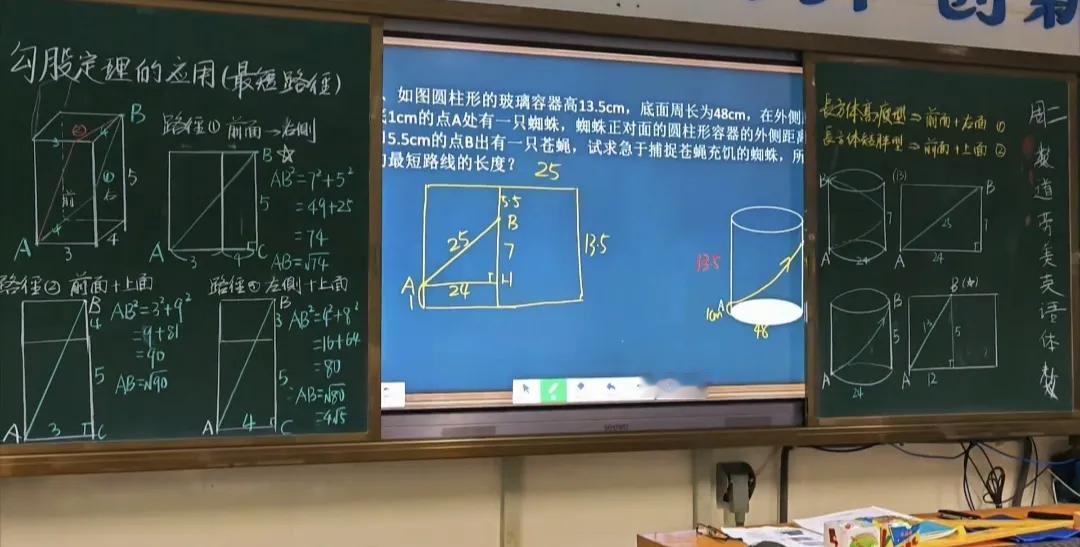 创新
勾股定理的应用(最短路径)
B
②
①
5
前
右
A
3
4
路径① 前面→右侧
B
5
A
3
4
C
AB²=7²+5²
=49+25
=74
AB=√74
路径② 前面+上面
B
4
5
A
3
C
AB²=3²+9²
=9+81
=90
AB=√90
路径③ 左侧+上面
B
3
5
A
4
C
AB²=4²+8²
=16+64
=80
AB=√80
=4√5
、如图圆柱形的玻璃容器高13.5cm，底面周长为48cm，在外侧
1cm的点A处有一只蜘蛛，蜘蛛正对面的圆柱形容器的外侧距离
5.5cm的点B出有一只苍蝇，试求急于捕捉苍蝇充饥的蜘蛛，所
最短路线的长度？ 25
5.5
B
25
7
13.5
A
24
H
1
13.5
A
1cm
48
长方体高底型⇒前面+右面 ①
长方体矮胖型⇒前面+上面 ②
B
7
A
24
B
25
7
A
24
B
5
A
24
B
13
5
A
12
周二
数道劳美英语体数